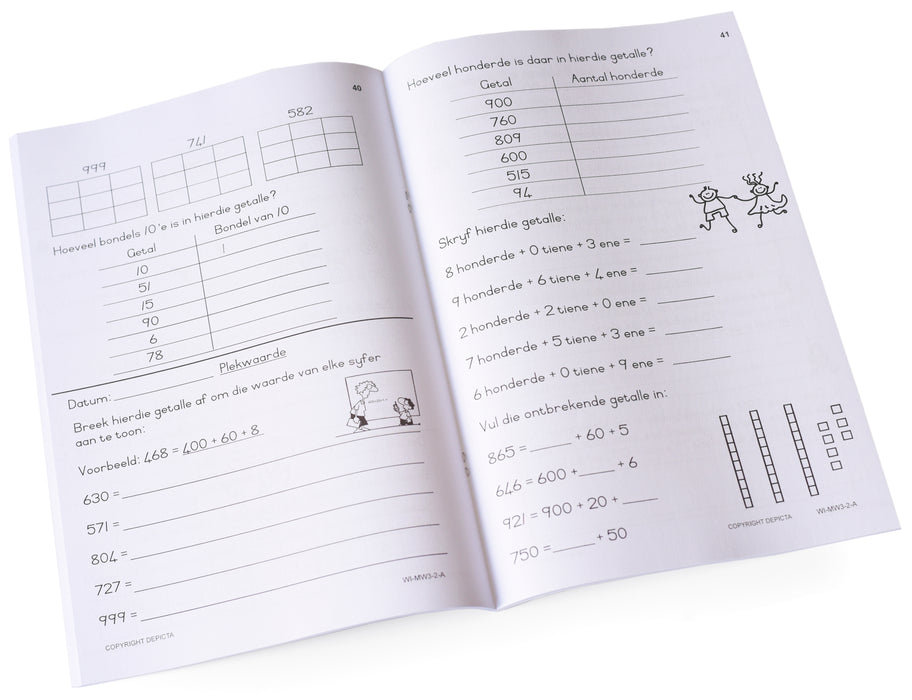 40
999 741 582
Hoeveel bondels 10'e is in hierdie getalle?
Getal Bondel van 10
10 1
51
15
90
6
78
Plekwaarde
Datum:
Breek hierdie getalle af om die waarde van elke syfer
aan te toon:
Voorbeeld: 468 = 400 + 60 + 8
630 =
571 =
804 =
727 =
999 =
COPYRIGHT DEPICTA WI-MW3-2-A
41
Hoeveel honderde is daar in hierdie getalle?
Getal Aantal honderde
900
760
809
600
515
94
Skryf hierdie getalle:
8 honderde + 0 tiene + 3 ene = ______
9 honderde + 6 tiene + 4 ene = ______
2 honderde + 2 tiene + 0 ene = ______
7 honderde + 5 tiene + 3 ene = ______
6 honderde + 0 tiene + 9 ene = ______
Vul die ontbrekende getalle in:
865 = ______ + 60 + 5
646 = 600 + ______ + 6
921 = 900 + 20 + ______
750 = ______ + 50
COPYRIGHT DEPICTA WI-MW3-2-A